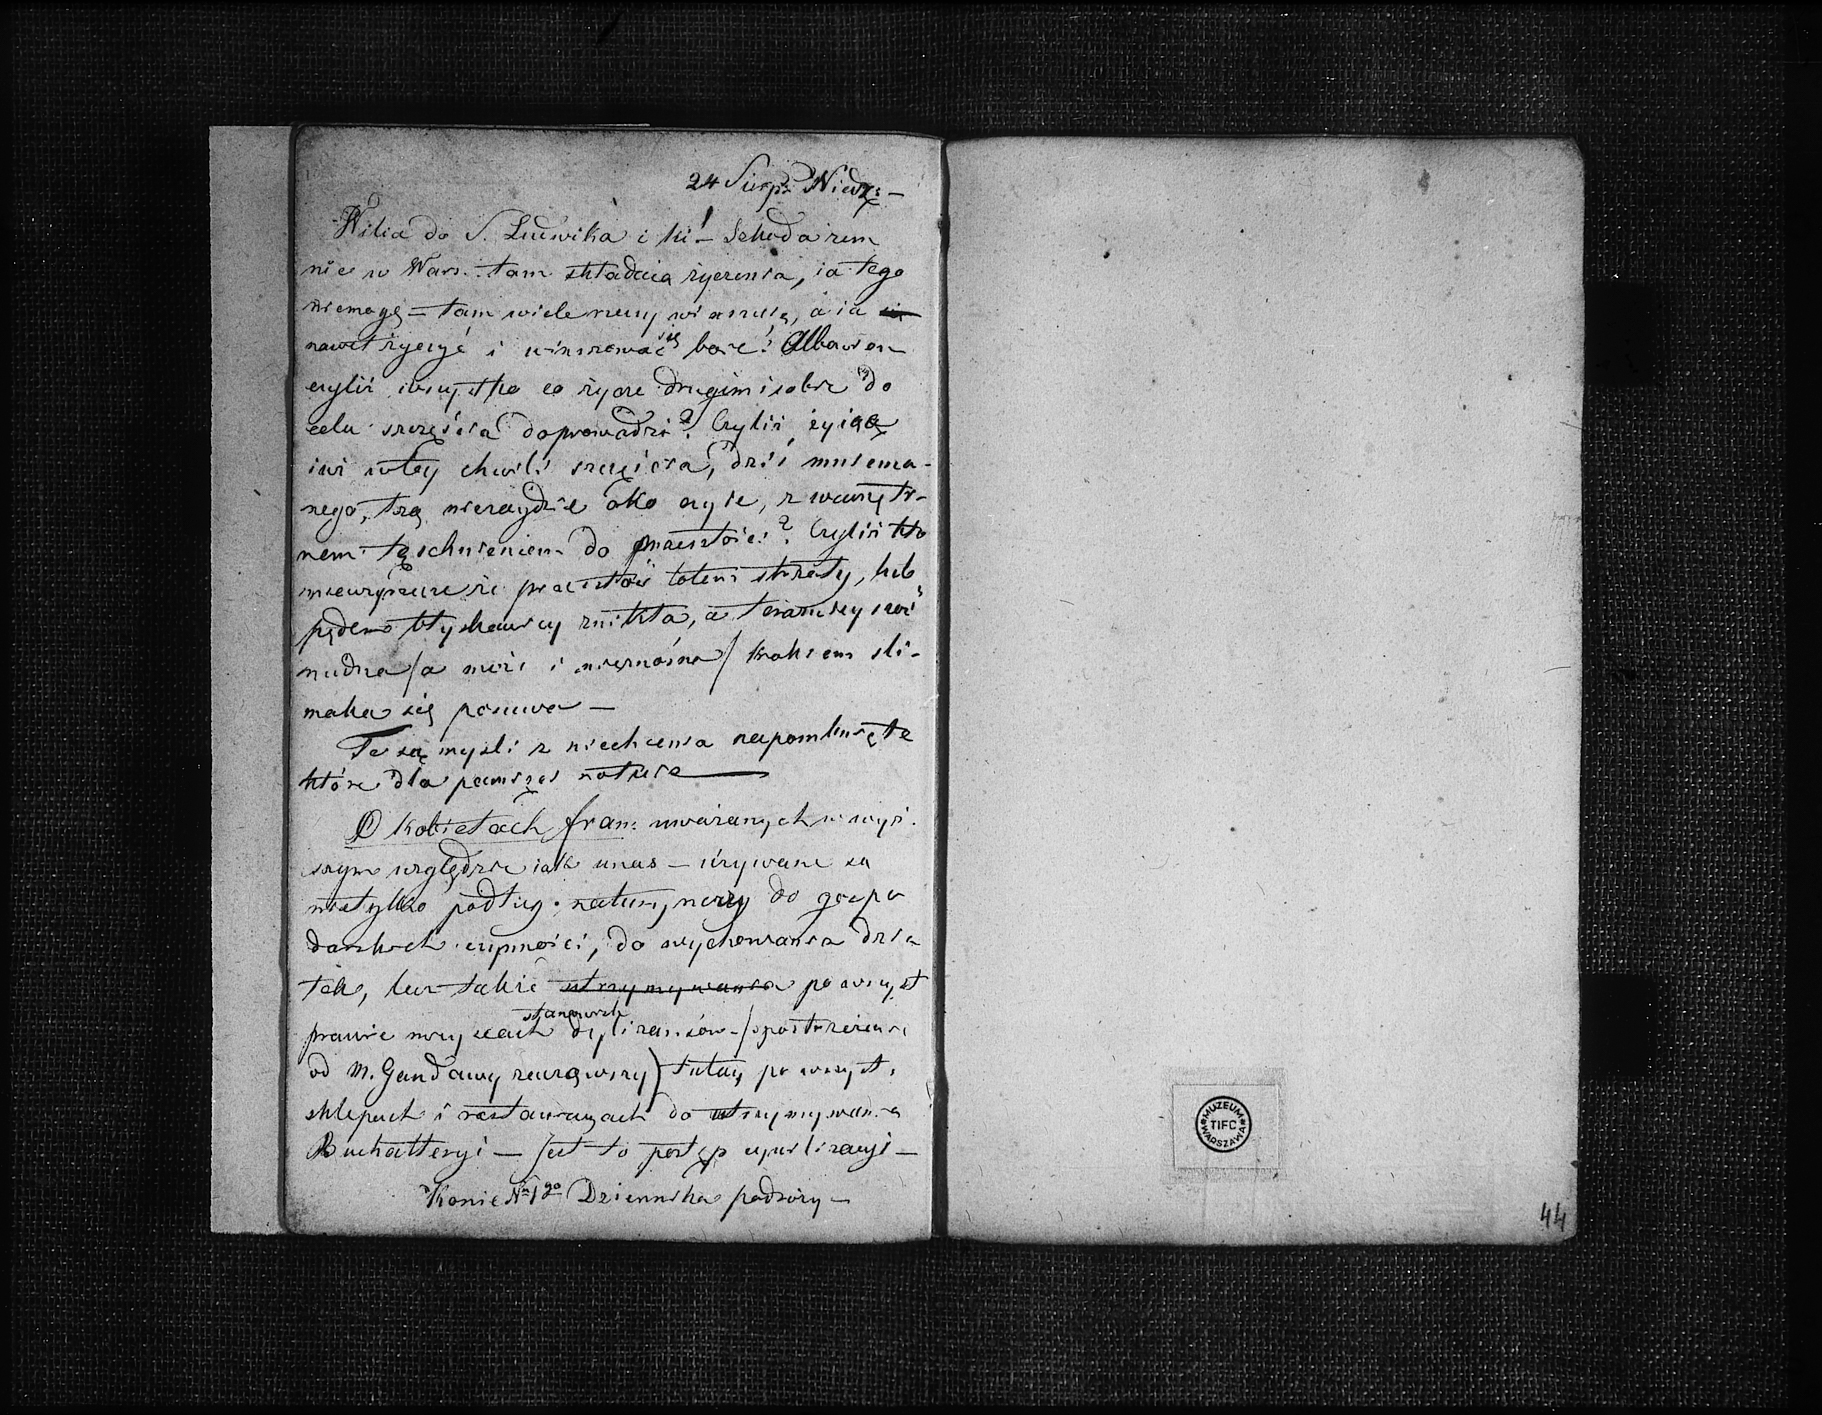 24 Sierp: Niedz: —
Wilia do S. Ludwika i ki! — Szkoda żem
nie w Wars. tam składaią życzenia, ia tego
niemogę — tam wiele rzeczy winszuią, a ia
nawet życzyć i winszować się boię! Albowiem
czyliż wszystko co życzę drugim i sobie do
celu szczęścia doprowadzi? Czyliż żyiąc
iuż w tey chwili szczęścia, dziś mniema-
nego, łzą nie zaydzie oko czyie, z wewnętrz-
nem tęschnieniem do przeszłości? Czyliż kto
niewyrzecze że przeszłość lotem strzały, lub
pędem błyskawicy znikła, a teraznieyszość
nudna /a może i nieznośna/ krokiem śli-
maka się posuwa —
Te są myśli z niechcenia napomknięte
które dla pamięci notuię —
O kobietach fran: uważanych w wyż-
szym względzie iak u nas — używane są
nietylko podług natury rzeczy do gospo
darskich czynności, do wychowania dzia
tek, lecz także utrzymywania po wszyst
prawie mieyscach stanowisk dyliżansów — /spostrzeżenie
od M. Gandawy zacząwszy) tutay po wszyst.
sklepach i restauracyach do utrzymywania
Buchalteryi — Jest to postęp cywilizacyi —
Koniec No 1go Dziennika podróży —
MUZEUM
TIFC
WARSZAWA
44